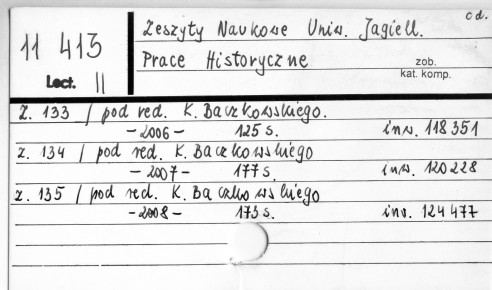 c d.
11 413
Lect. II
Zeszyty Naukowe Uniw. Jagiell.
Prace Historyczne
zob.
kat. komp.
Z. 133 / pod red. K. Baczkowskiego.
- 2006 - 125 s. inw. 118351
Z. 134 / pod red. K. Baczkowskiego
- 2007 - 177 s. inw. 120228
Z. 135 / pod red. K. Baczkowskiego
- 2008 - 173 s. inv. 124477